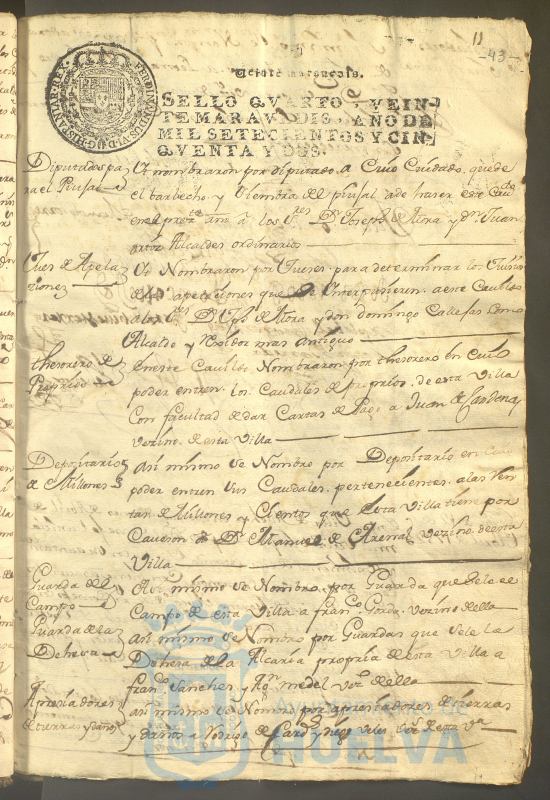 11
43
Veinte maravedis.
SELLO QVARTO, VEIN-
TE MARAVEDIS, AÑO DE
MIL SETECIENTOS Y CIN-
QVENTA Y DOS.
Diputados pa
ra el Piusal
Se nombraron por diputado, a Cuio Cuidado, quede
el barbecho y Siembra del piusal a de haser este
en el a los Sres Dn Joseph de Mora y Dn Juan
Alcaldes ordinarios
Jues de Apela
ziones
Se Nombraron por Jueses para determinar los
de apelaciones que Se Interpusieren a este Cavildo
Dn de Mora y don domingo Como
Alcalde y Rexidor mas antiguo
thesorero de
Propios
En este Cavildo Nombraron por thesorero en Cuio
poder entren los Caudales de propios de esta Villa
Con facultad de dar Cartas de Pago a Juan de Cardenas
vezino de esta Villa
Depositario
de Millones
Asi mismo Se Nombro por Depositario en Cuio
poder entren Sus Caudales pertenecientes a las Ren
tas de Millones y que Esta Villa tiene por
a Dn Manuel de Arenal vezino de esta
Villa
Guarda del
Campo
Asi mismo Se Nombro por Guarda que Sele el
Campo de esta Villa a Franco vezino de ella
Guarda de la
Dehesa
Asi mismo Se Nombro por Guardas que Sele la
Dehesa de la Alcaria propria de esta Villa a
Franco Sanchez y medel vezs de ella
Apresiadores
de tierras y daños
Asi mismo Se Nombro por apresiadores de tierras
y daños a Rodrigo de y diego Veles de esta Va
HUELVA